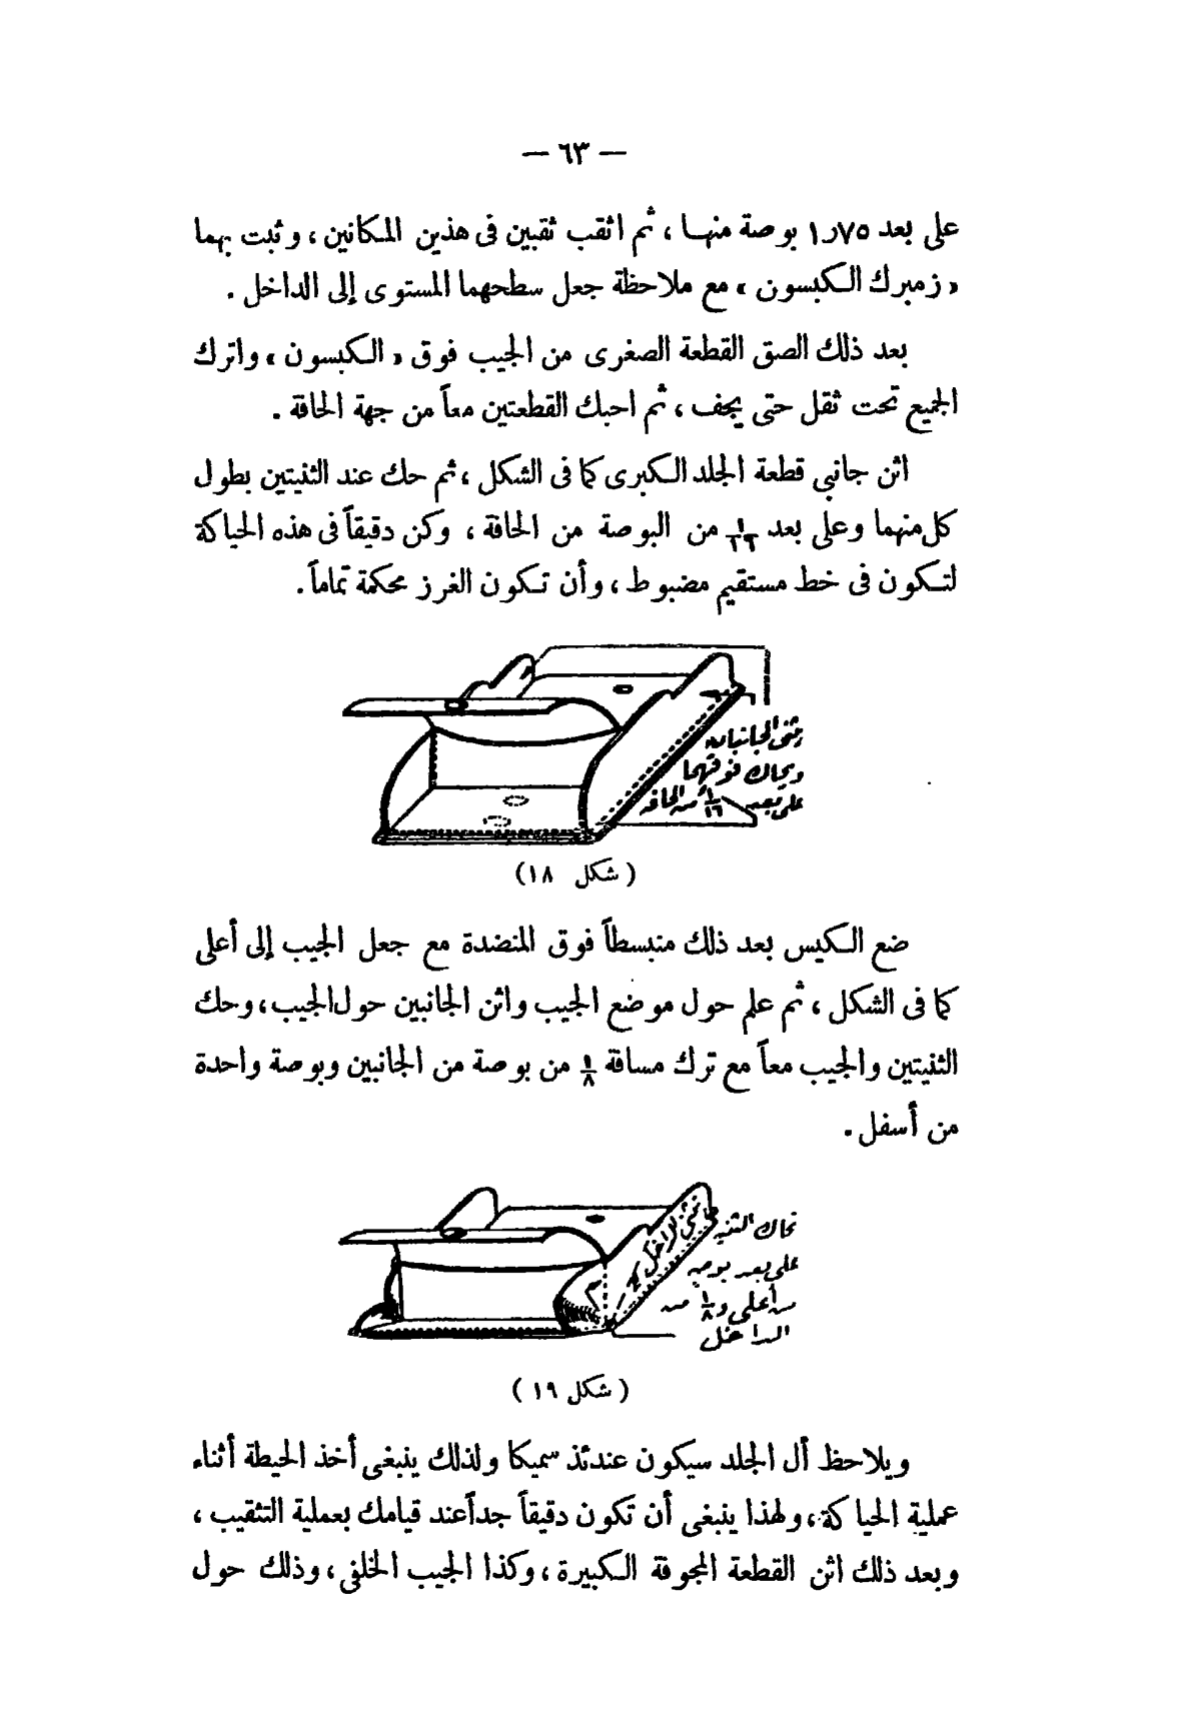 — ٦٣ —
على بعد ١٫٧٥ بوصة منها ، ثم اثقب ثقبين فى هذين المكانين ، وثبت بهما
« زمبرك الكبسون » مع ملاحظة جعل سطحهما المستوى إلى الداخل .
بعد ذلك الصق القطعة الصغرى من الجيب فوق « الكبسون » واترك
الجميع تحت ثقل حتى يجف ، ثم احبك القطعتين معاً من جهة الحافة .
اثن جانبي قطعة الجلد الكبرى كما فى الشكل ، ثم حك عند الثنيتين بطول
كل منهما وعلى بعد ١/١٦ من البوصة من الحافة ، وكن دقيقاً فى هذه الحياكة
لتكون فى خط مستقيم مضبوط ، وأن تكون الغرز محكمة تماماً .
يثنى الجانبان
ويحاك فوقهما
على بعد ١/١٦ من الحافه
( شكل ١٨ )
ضع الكيس بعد ذلك منبسطاً فوق المنضدة مع جعل الجيب إلى أعلى
كما فى الشكل ، ثم علم حول موضع الجيب واثن الجانبين حول الجيب ، وحك
الثنيتين والجيب معاً مع ترك مسافة ١/٨ من بوصة من الجانبين وبوصة واحدة
من أسفل .
يثنى للداخل
تحاك الثنيه
على بعد بوصه
من أعلى و ١/٨ من
الداخل
( شكل ١٩ )
ويلاحظ أل الجلد سيكون عندئذ سميكا ولذلك ينبغى أخذ الحيطة أثناء
عملية الحياكة ، ولهذا ينبغى أن تكون دقيقاً جداً عند قيامك بعملية التثقيب ،
وبعد ذلك اثن القطعة المجوفة الكبيرة ، وكذا الجيب الخلفى ، وذلك حول